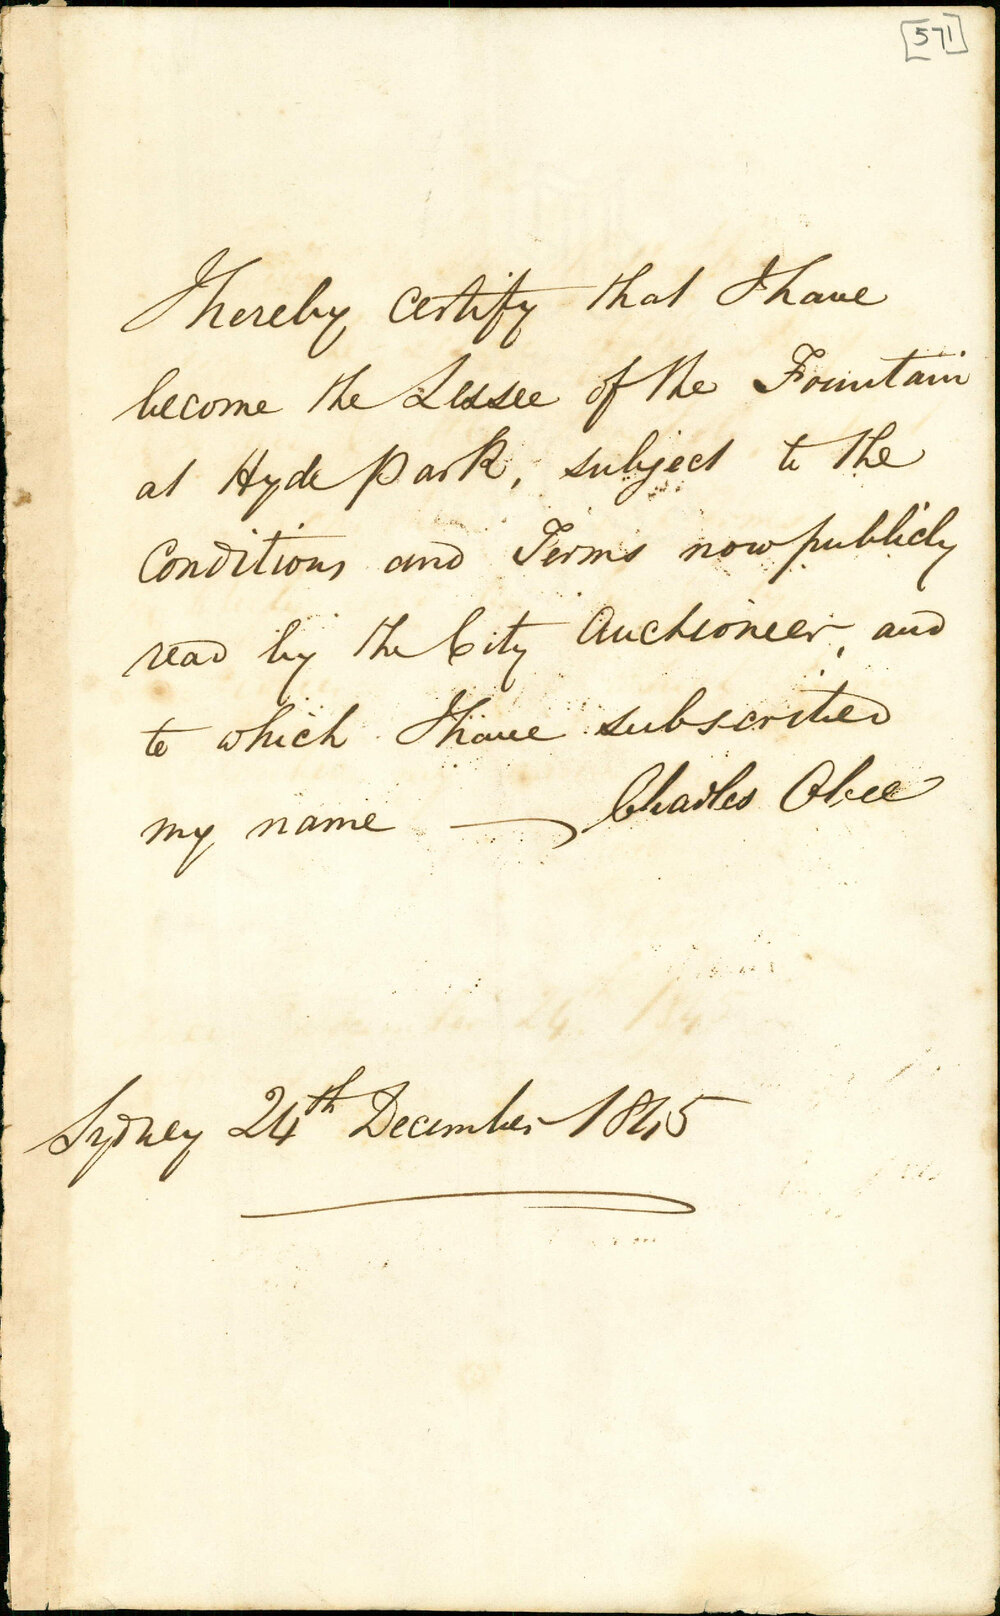 [571]
I hereby certify that I have
become the Lessee of the Fountain
at Hyde Park, subject to the
Conditions and Terms now publicly
read by the City Auctioneer, and
to which I have subscribed
my name — Charles Obee
Sydney 24th December 1845